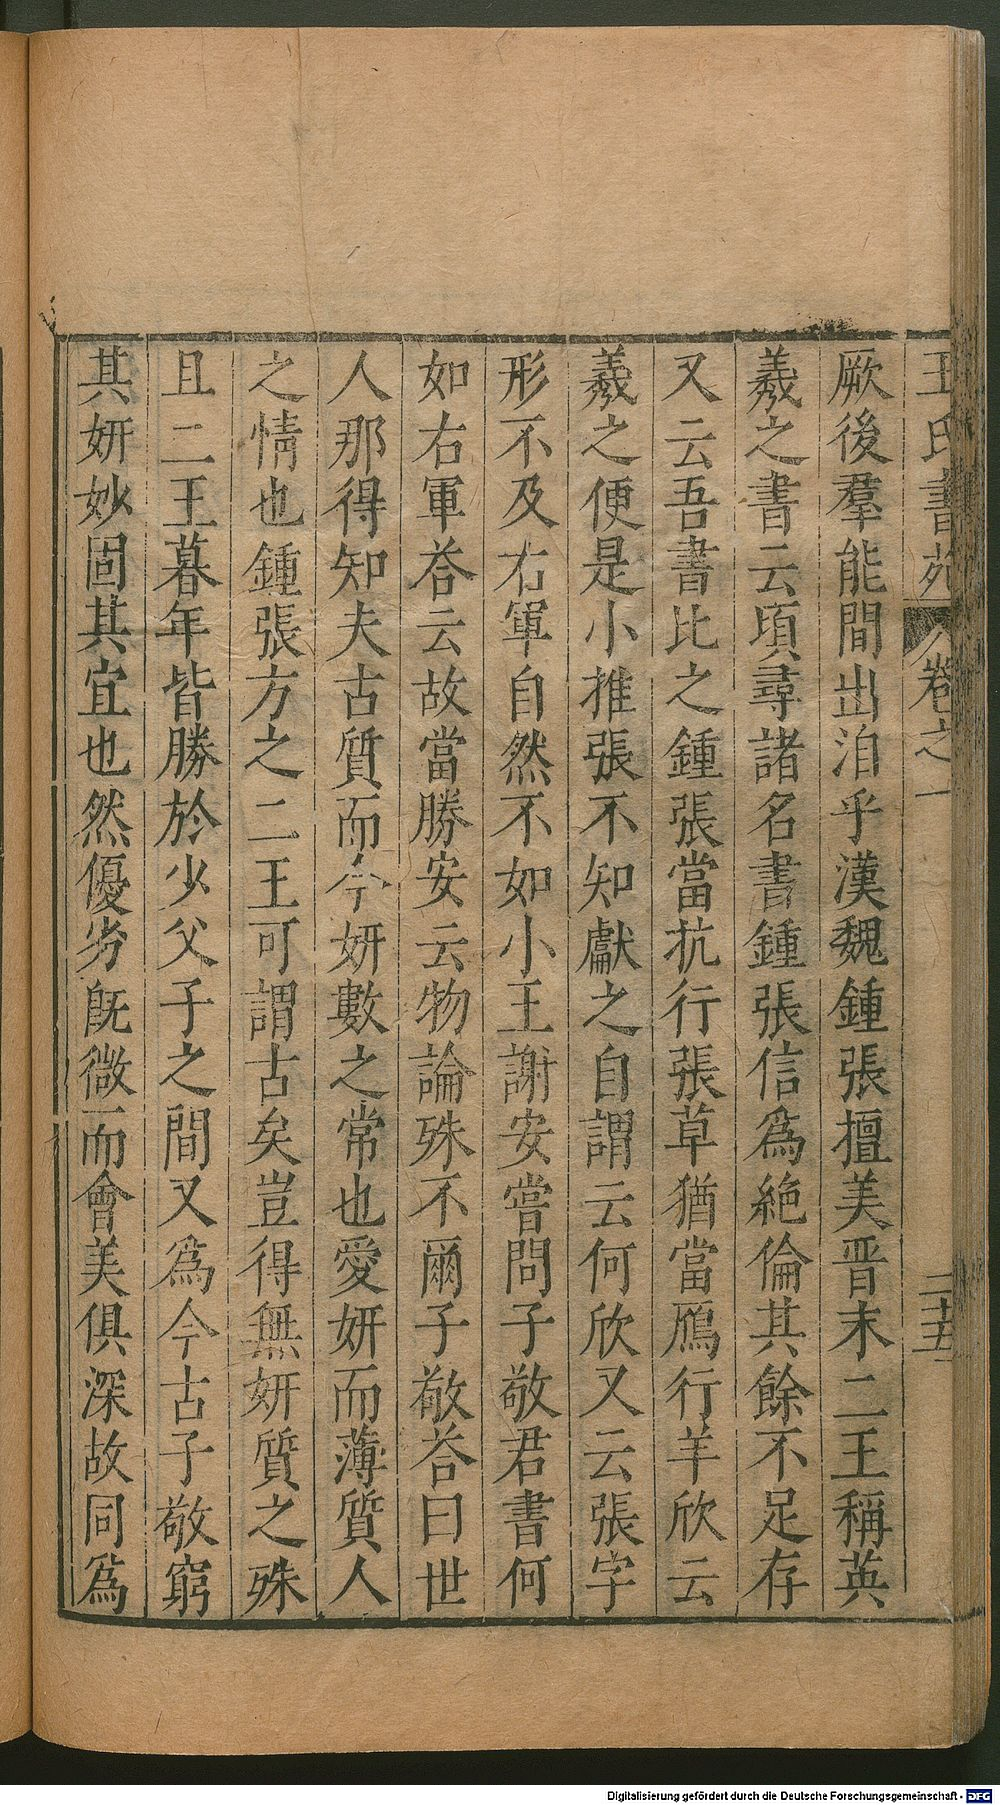 王氏書苑 卷之一 二十五
厥後羣能間出洎乎漢魏鍾張擅美晋末二王稱英
羲之書云頃尋諸名書鍾張信爲絶倫其餘不足存
又云吾書比之鍾張當抗行張草猶當鴈行羊欣云
羲之便是小推張不知獻之自謂云何欣又云張字
形不及右軍自然不如小王謝安嘗問子敬君書何
如右軍荅云故當勝安云物論殊不爾子敬荅曰世
人那得知夫古質而今妍數之常也愛妍而薄質人
之情也鍾張方之二王可謂古矣豈得無妍質之殊
且二王暮年皆勝於少父子之間又爲今古子敬窮
其妍妙固其宜也然優劣旣微而會美俱深故同爲
Digitalisierung gefördert durch die Deutsche Forschungsgemeinschaft - DFG